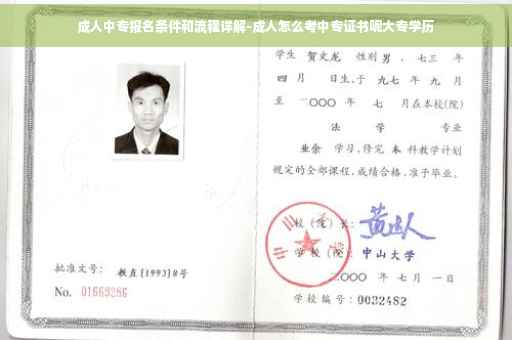 成人中专报名条件和流程详解-成人怎么考中专证书呢大专学历
学生 贺文龙 性别 男 ，七三 年
四 月 日生，于 九七 年 九 月
至 二〇〇〇 年 七 月在本校(院)
法 学 专业
业余 学习，修完 本 科教学计划
规定的全部课程，成绩合格，准予毕业。
校（院）长：
学校（院）：中山大学
二〇〇〇 年 七 月 一 日
学校编号：0032482
批准文号： 教直[1993]8号
No. 01669286